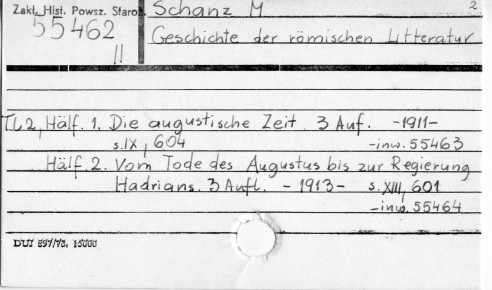 Zakł. Hist. Powsz. Staroż. Schanz M 2
55462
II
Geschichte der römischen Litteratur
Tl. 2, Hälf. 1. Die augustische Zeit. 3 Auf. -1911-
s. IX, 604 -inw. 55463
Hälf. 2. Vom Tode des Augustus bis zur Regierung
Hadrians. 3 Aufl. - 1913 - s. XIII, 601
-inw. 55464
DUJ 897/78. 15000